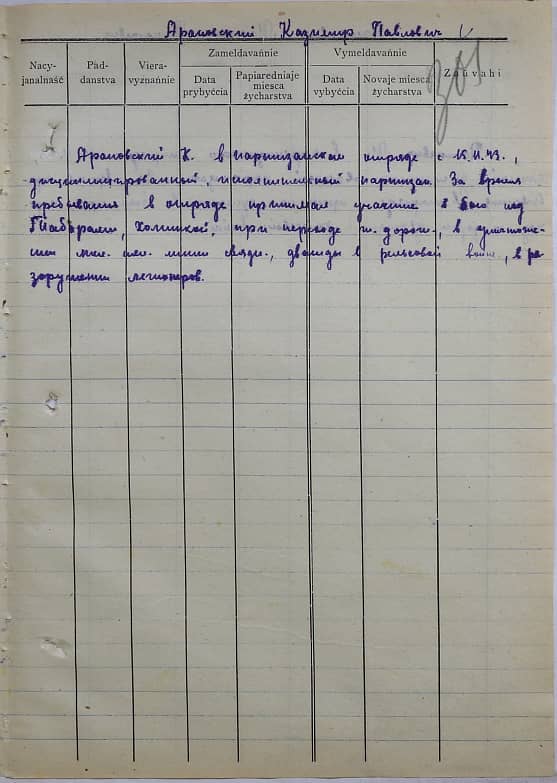 Арановский Казимир Павлович
Nacyjanalnaść
Paddanstva
Vieravyznańnie
Zameldavańnie
Data prybyćcia
Papiaredniaje miesca žycharstva
Vymeldavańnie
Data vybyćcia
Novaje miesca žycharstva
Zaŭvahi
201
Арановский К. в партизанском отряде с
дисциплинированный, исполнительный партизан. За время
пребывания в отряде принимал участие в бою под
Холшиной, при переходе ж. дороги, в уничтоже-
нии линии связи, дважды в рельсовой войне, в ра
зоружении легионеров.